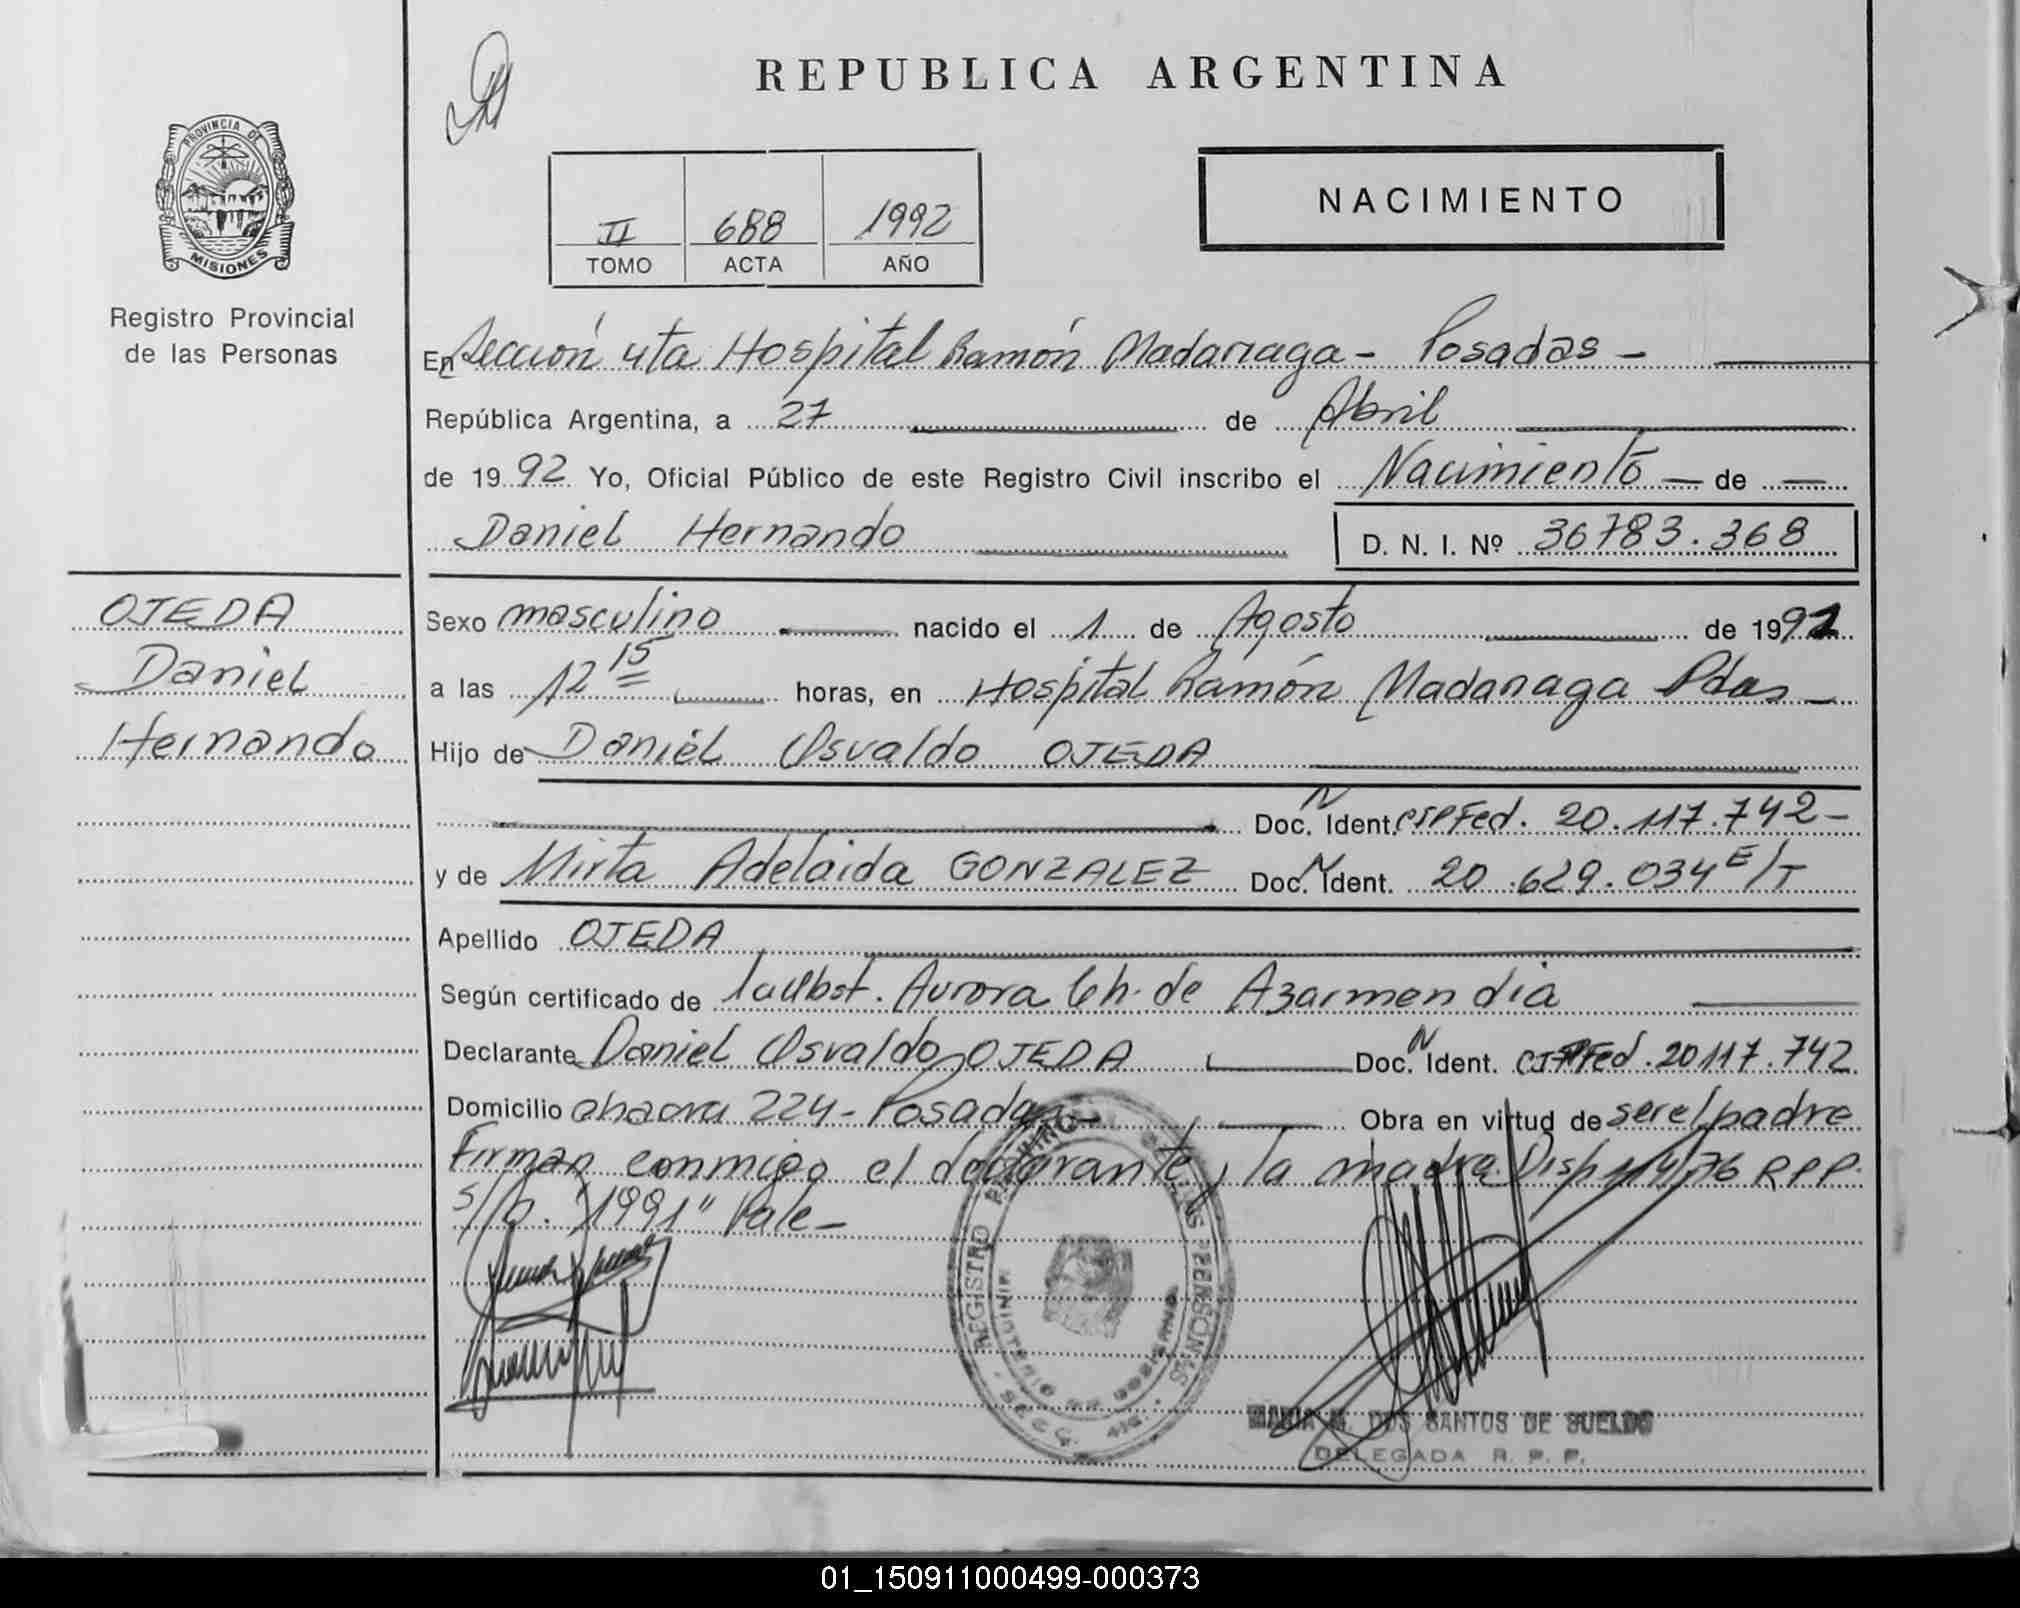 REPUBLICA ARGENTINA
PROVINCIA DE
MISIONES
Registro Provincial
de las Personas
II 688 1992
TOMO ACTA AÑO
NACIMIENTO
En Sección 4ta Hospital Ramón Madariaga - Posadas -
República Argentina, a 27 de Abril
de 1992 Yo, Oficial Público de este Registro Civil inscribo el Nacimiento - de -
Daniel Hernando D. N. I. Nº 36783.368
OJEDA
Daniel
Hernando
Sexo masculino nacido el 1 de Agosto de 1991
a las 12 15 horas, en Hospital Ramón Madariaga Pdas -
Hijo de Daniel Osvaldo OJEDA
Doc. N Ident. CIPFed. 20.117.742-
y de Mirta Adelaida GONZALEZ Doc. N Ident. 20.629.034 E/T
Apellido OJEDA
Según certificado de la Obst. Aurora Ch. de Azarmendia
Declarante Daniel Osvaldo OJEDA Doc. N Ident. CIPFed. 20117.742
Domicilio chacra 224 - Posadas - Obra en virtud de ser el padre
Firman conmigo el declarante y la madre. Disp 114/76 RPP.
s/b. "1991" Vale -
REGISTRO PROVINCIAL DE LAS PERSONAS
MINISTERIO DE GOBIERNO
SECC. 4ta.
MARIA M. DOS SANTOS DE SUELDO
DELEGADA R. P. P.
01_150911000499-000373